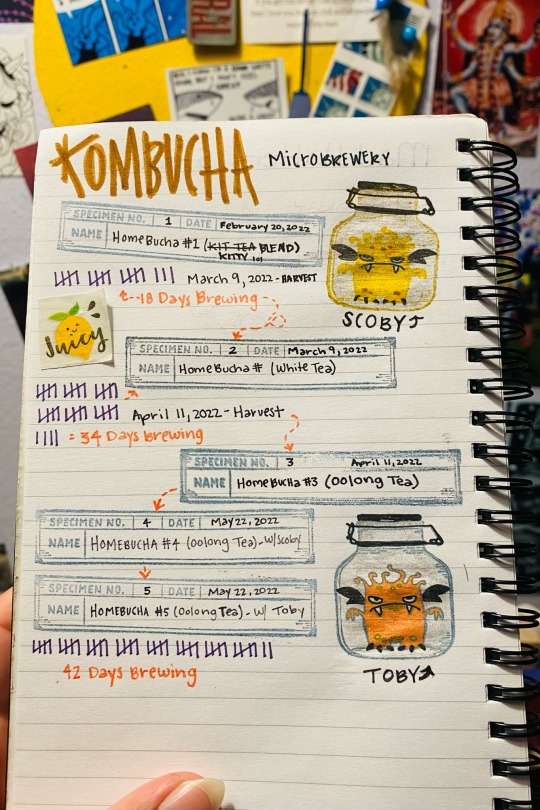 KOMBUCHA MICROBREWERY
SPECIMEN NO. 1 DATE February 20, 2022
NAME HomeBucha #1 (KIT TEA BLEND)
KITTY 101
March 9, 2022 - HARVEST
18 Days Brewing
Juicy
SCOBY
SPECIMEN NO. 2 DATE March 9, 2022
NAME HomeBucha # (White Tea)
April 11, 2022 - Harvest
= 34 Days Brewing
SPECIMEN NO. 3 April 11, 2022
NAME HomeBucha #3 (Oolong Tea)
SPECIMEN NO. 4 DATE May 22, 2022
NAME HOMEBUCHA #4 (Oolong Tea) - w/Scoby
SPECIMEN NO. 5 DATE May 22, 2022
NAME HOMEBUCHA #5 (Oolong Tea) - w/ Toby
42 Days Brewing
TOBY